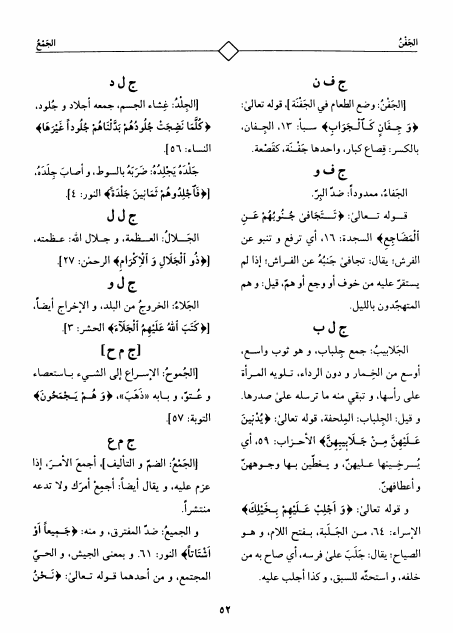 الجَفْنُ
الجَمْعُ
ج ف ن
[الجَفْنُ: وضع الطعام في الجَفْنَة]، قوله تعالىٰ:
﴿وَ جِفانٍ كَـالْجَوٰابِ﴾ سبأ: ١٣، الجِـفان،
بالكسر: قِصاع كبار، واحدها جَفْنَة، كقَصْعة.
ج ف و
الجَفاءُ، ممدوداً: ضدّ البِرّ.
قـوله تـعالىٰ: ﴿تَـتَجٰافىٰ جُـنُوبُهُمْ عَـنِ
الْمَضٰاجِعِ﴾ السجدة: ١٦، أي ترفع و تنبو عن
الفرش؛ يقال: تجافىٰ جَنبُهُ عن الفراش؛ إذا لم
يستقرّ عليه من خوف أو وجع أو همّ، قيل: و هم
المتهجّدون بالليل.
ج ل ب
الجَلابيبُ: جمع جِلباب، و هو ثوب واسع،
أوسع من الخِمار و دون الرداء، تلويه المرأة
على رأسها، و تبقي منه ما ترسله على صدرها.
و قيل: الجِلباب: المِلحفة، قوله تعالىٰ: ﴿يُدْنِينَ
عَـلَيْهِنَّ مِـنْ جَـلاٰبِيبِهِنَّ﴾ الأحزاب: ٥٩، أي
يُـرخـينها عليهنّ، و يغطّين بـها وجـوههنّ
و أعطافهنّ.
و قوله تعالىٰ: ﴿وَ أَجْلِبْ عَـلَيْهِمْ بِـخَيْلِكَ﴾
الإسراء: ٦٤، مـن الجَـلَبة، بـفتح اللام، و هـو
الصياح؛ يقال: جَلَبَ علىٰ فرسه، أي صاح به من
خلفه، و استحثّه للسبق، و كذا أجلب عليه.
ج ل د
[الجِلْدُ: غِشاء الجسم، جمعه أجلاد و جُلود،
﴿كُلَّمٰا نَضِجَتْ جُلُودُهُمْ بَدَّلْنٰاهُمْ جُلُوداً غَيْرَهٰا﴾
النساء: ٥٦].
جَلَدَهُ يَجْلِدُهُ: ضَرَبَهُ بالسوط، و أصابَ جِلدَهُ،
[﴿فَاجْلِدُوهُمْ ثَمٰانِينَ جَلْدَةً﴾ النور: ٤].
ج ل ل
الجَـلالُ: العـظمة، و جـلال الله: عـظمته،
[﴿ذُو الْجَلاٰلِ وَ الْإِكْرٰامِ﴾ الرحمٰن: ٢٧].
ج ل و
الجَلاءُ: الخروجُ من البلد، و الإخراج أيضاً،
[﴿كَتَبَ اللهُ عَلَيْهِمُ الْجَلاٰءَ﴾ الحشر: ٣].
[ج م ح]
[الجُموحُ: الإسراع إلى الشيء بـاستعصاء
و عُـتوّ، و بـابه «ذَهَبَ»، ﴿وَ هُـمْ يَـجْمَحُونَ﴾
التوبة: ٥٧].
ج م ع
[الجَمْعُ: الضمّ و التأليف]، أجمعَ الأمرَ، إذا
عزم عليه، و يقال أيضاً: أجمِعْ أمرَك ولا تدعه
منتشراً.
و الجميعُ: ضدّ المفترق، و منه: ﴿جَـمِيعاً أَوْ
أَشْتٰاتاً﴾ النور: ٦١. و بمعنى الجيش، و الحيّ
المجتمع، و من أحدهما قـوله تـعالىٰ: ﴿نَـحْنُ
٥٢